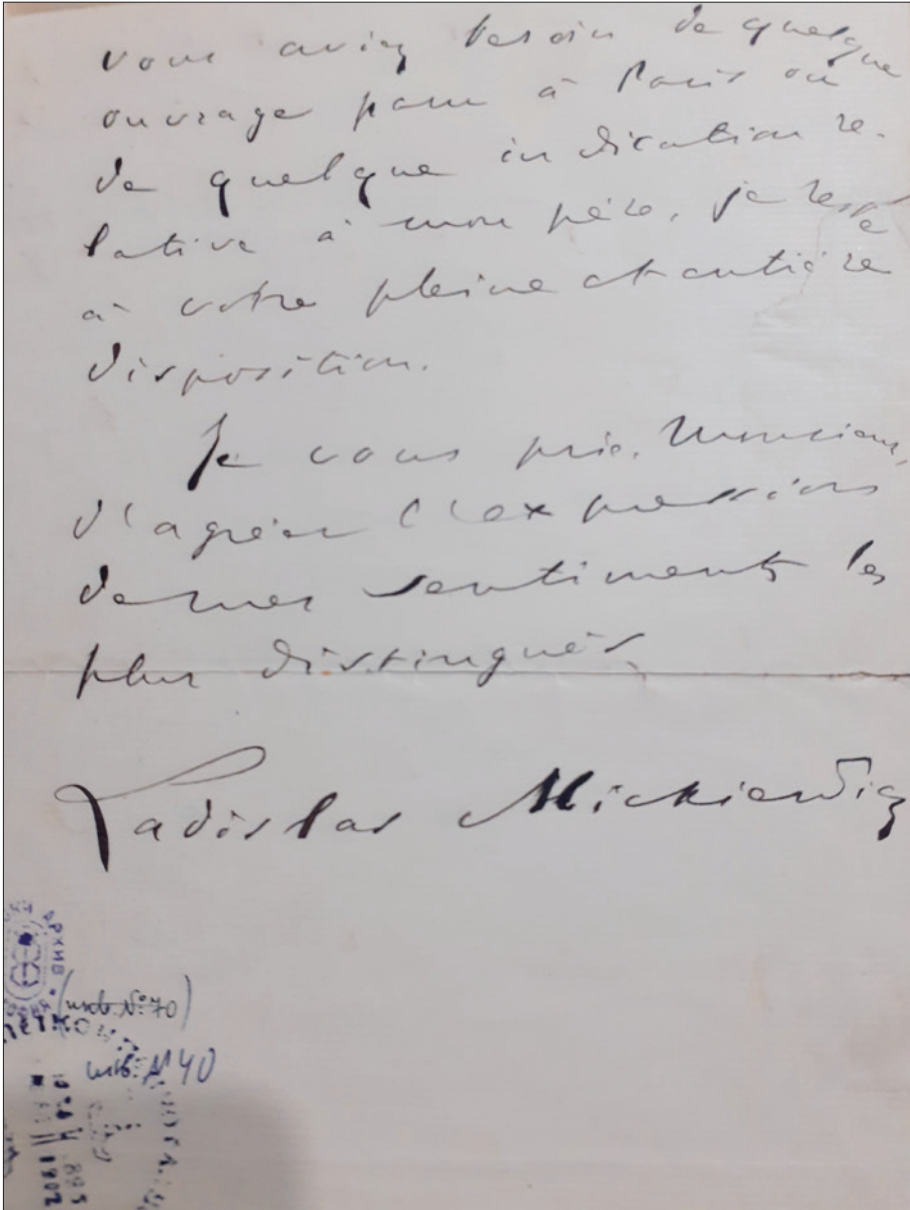 vous aviez besoin de quelque
ouvrage paru à Paris ou
de quelque indication re-
lative à mon père, je reste
à votre pleine et entière
disposition.
Je vous prie, Monsieur,
d'agréer l'expression
de mes sentiments les
plus distingués.
Ladislas Mickiewicz
АРХИВ
(инв. № 70)
инв. № 40
1902